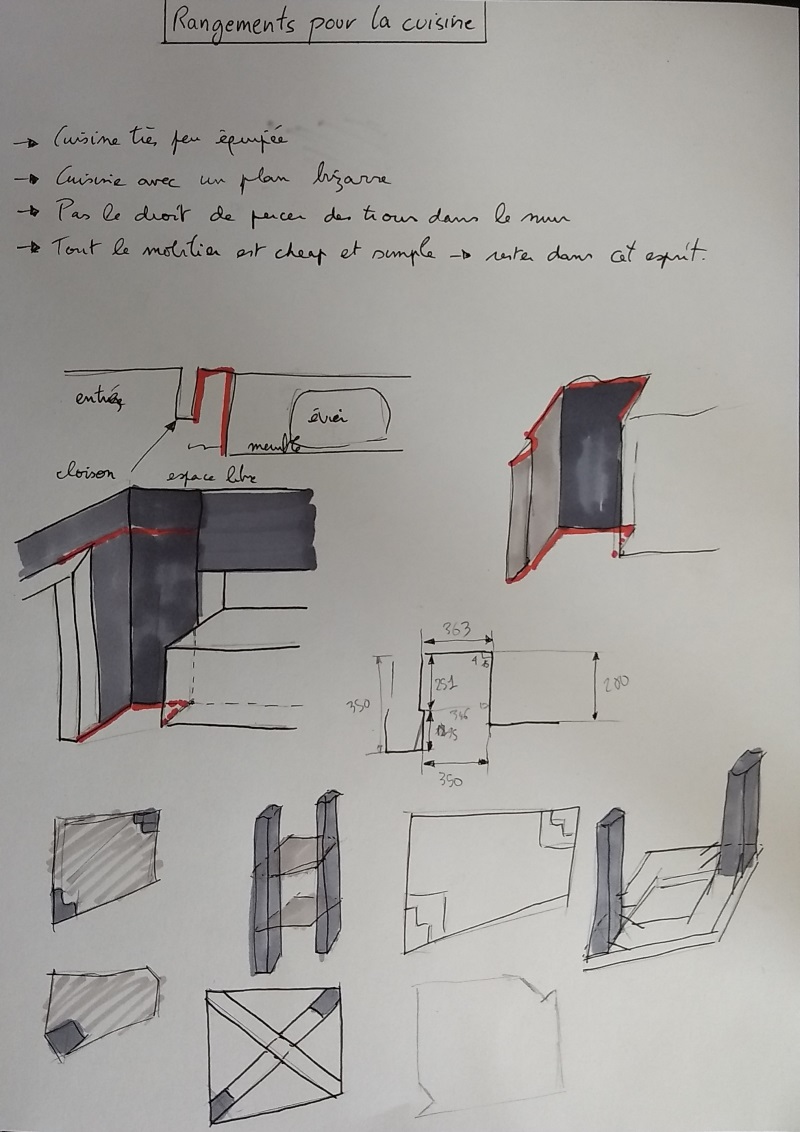 Rangements pour la cuisine
→ Cuisine très peu équipée
→ Cuisine avec un plan bizarre
→ Pas le droit de percer des trous dans le mur
→ Tout le mobilier est cheap et simple → rester dans cet esprit.
entrée
évier
meuble
cloison
espace libre
363
4
251
350
200
346
350